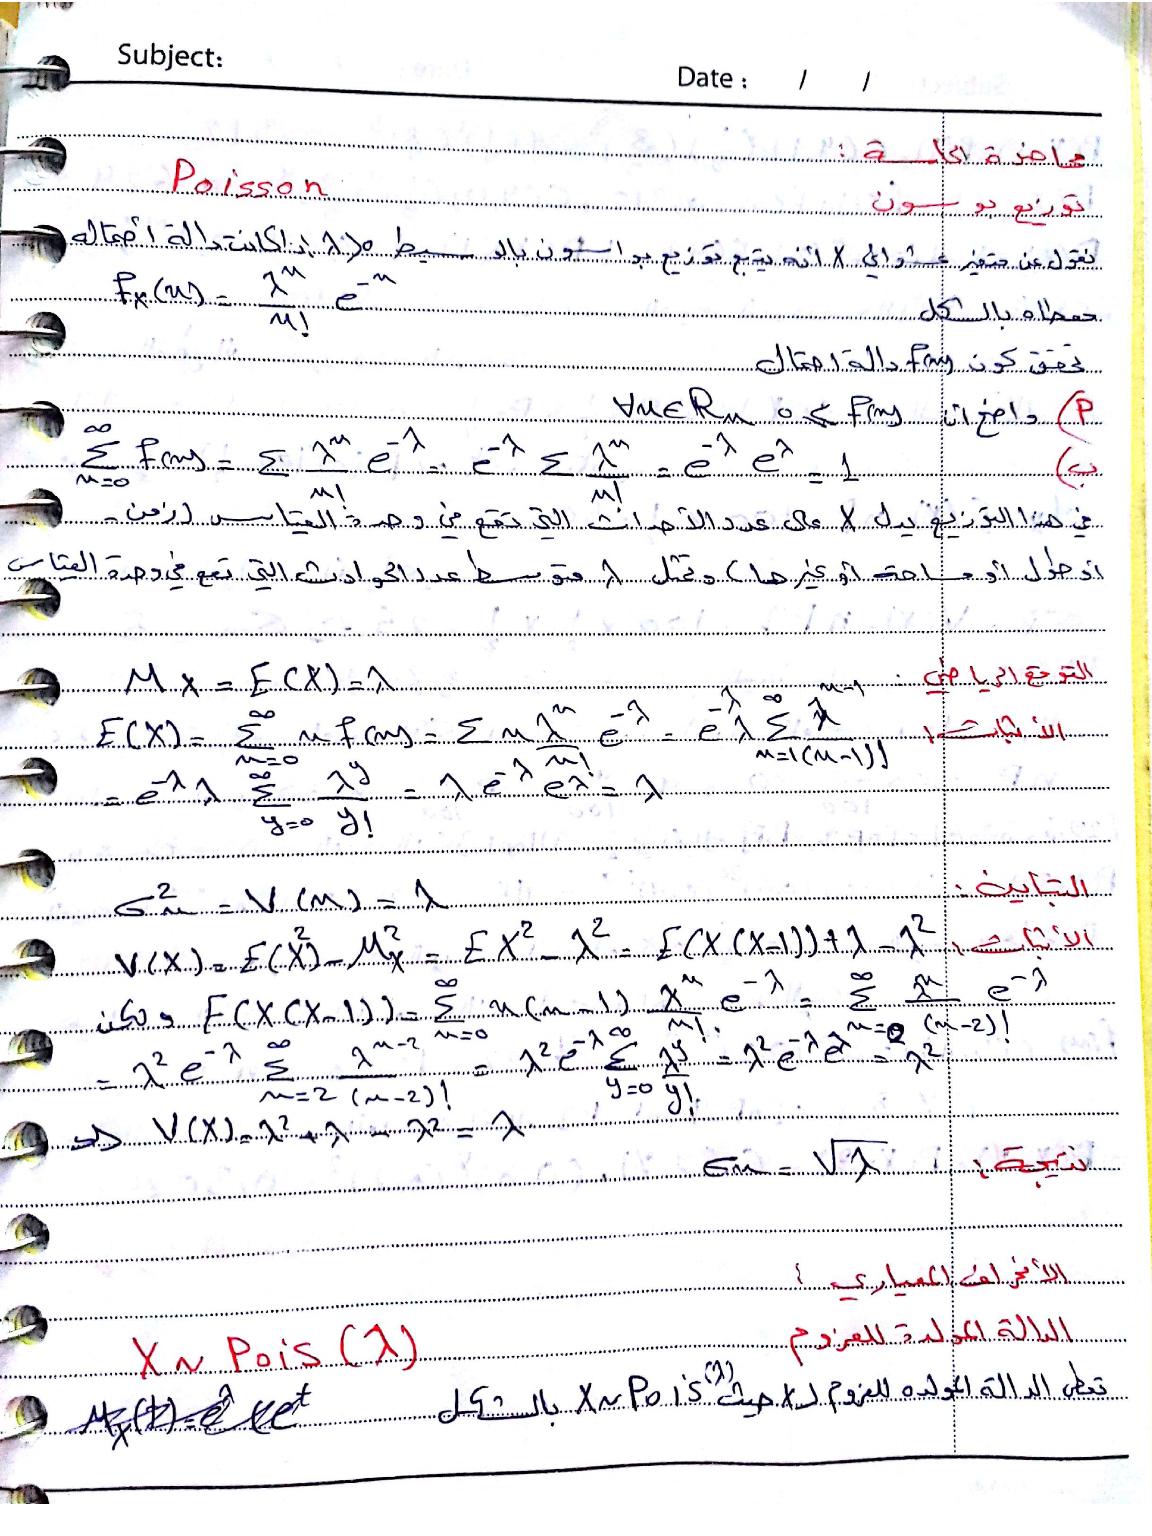 Subject:
Date : / /
محاضرة
Poisson
توزيع بوسون
نقول عن متغير عشوائي X أنه يتبع توزيع بواسون بالوسيط λ>0 إذا كانت دالة احتماله
معطاه بالشكل fₓ(x) = λˣ/x! e⁻ˣ
تحقق كون f(x) دالة احتمال
P) واضح ان 0 ≤ f(x) ∀x∈Rₓ
ب) ∑_{x=0}^{∞} f(x) = ∑ λˣ/x! e^{-λ} = e^{-λ} ∑ λˣ/x! = e^{-λ} e^{λ} = 1
في هذا التوزيع يدل X على عدد الأحداث التي تقع في وحدة القياس (زمن -
او طول او مساحة او غيرها) وتمثل λ متوسط عدد الحوادث التي تقع في وحدة القياس
التوقع الرياضي : M_X = E(X) = λ
الأثبات : E(X) = ∑_{x=0}^{∞} x f(x) = ∑ x λˣ/x! e^{-λ} = e^{-λ} λ ∑_{x=1}^{∞} λ^{x-1}/(x-1)!
= e^{-λ} λ ∑_{y=0}^{∞} λ^y/y! = λ e^{-λ} e^{λ} = λ
التباين : σ²ₓ = V(x) = λ
الأثبات : V(X) = E(X²) - M²_X = EX² - λ² = E(X(X-1)) + λ - λ²
ولكن E(X(X-1)) = ∑_{x=0}^{∞} x(x-1) λˣ/x! e^{-λ} = ∑_{x=2}^{∞} λˣ/(x-2)! e^{-λ}
= λ² e^{-λ} ∑_{x=2}^{∞} λ^{x-2}/(x-2)! = λ² e^{-λ} ∑_{y=0}^{∞} λ^y/y! = λ² e^{-λ} e^{λ} = λ²
V(X) = λ² + λ - λ² = λ
نتيجة : σₓ = √λ
الأنحراف المعياري :
الدالة المولدة للعزوم
X ~ Pois(λ)
تعطى الدالة المولده للعزوم لـ X حيث X~Pois(λ) بالشكل